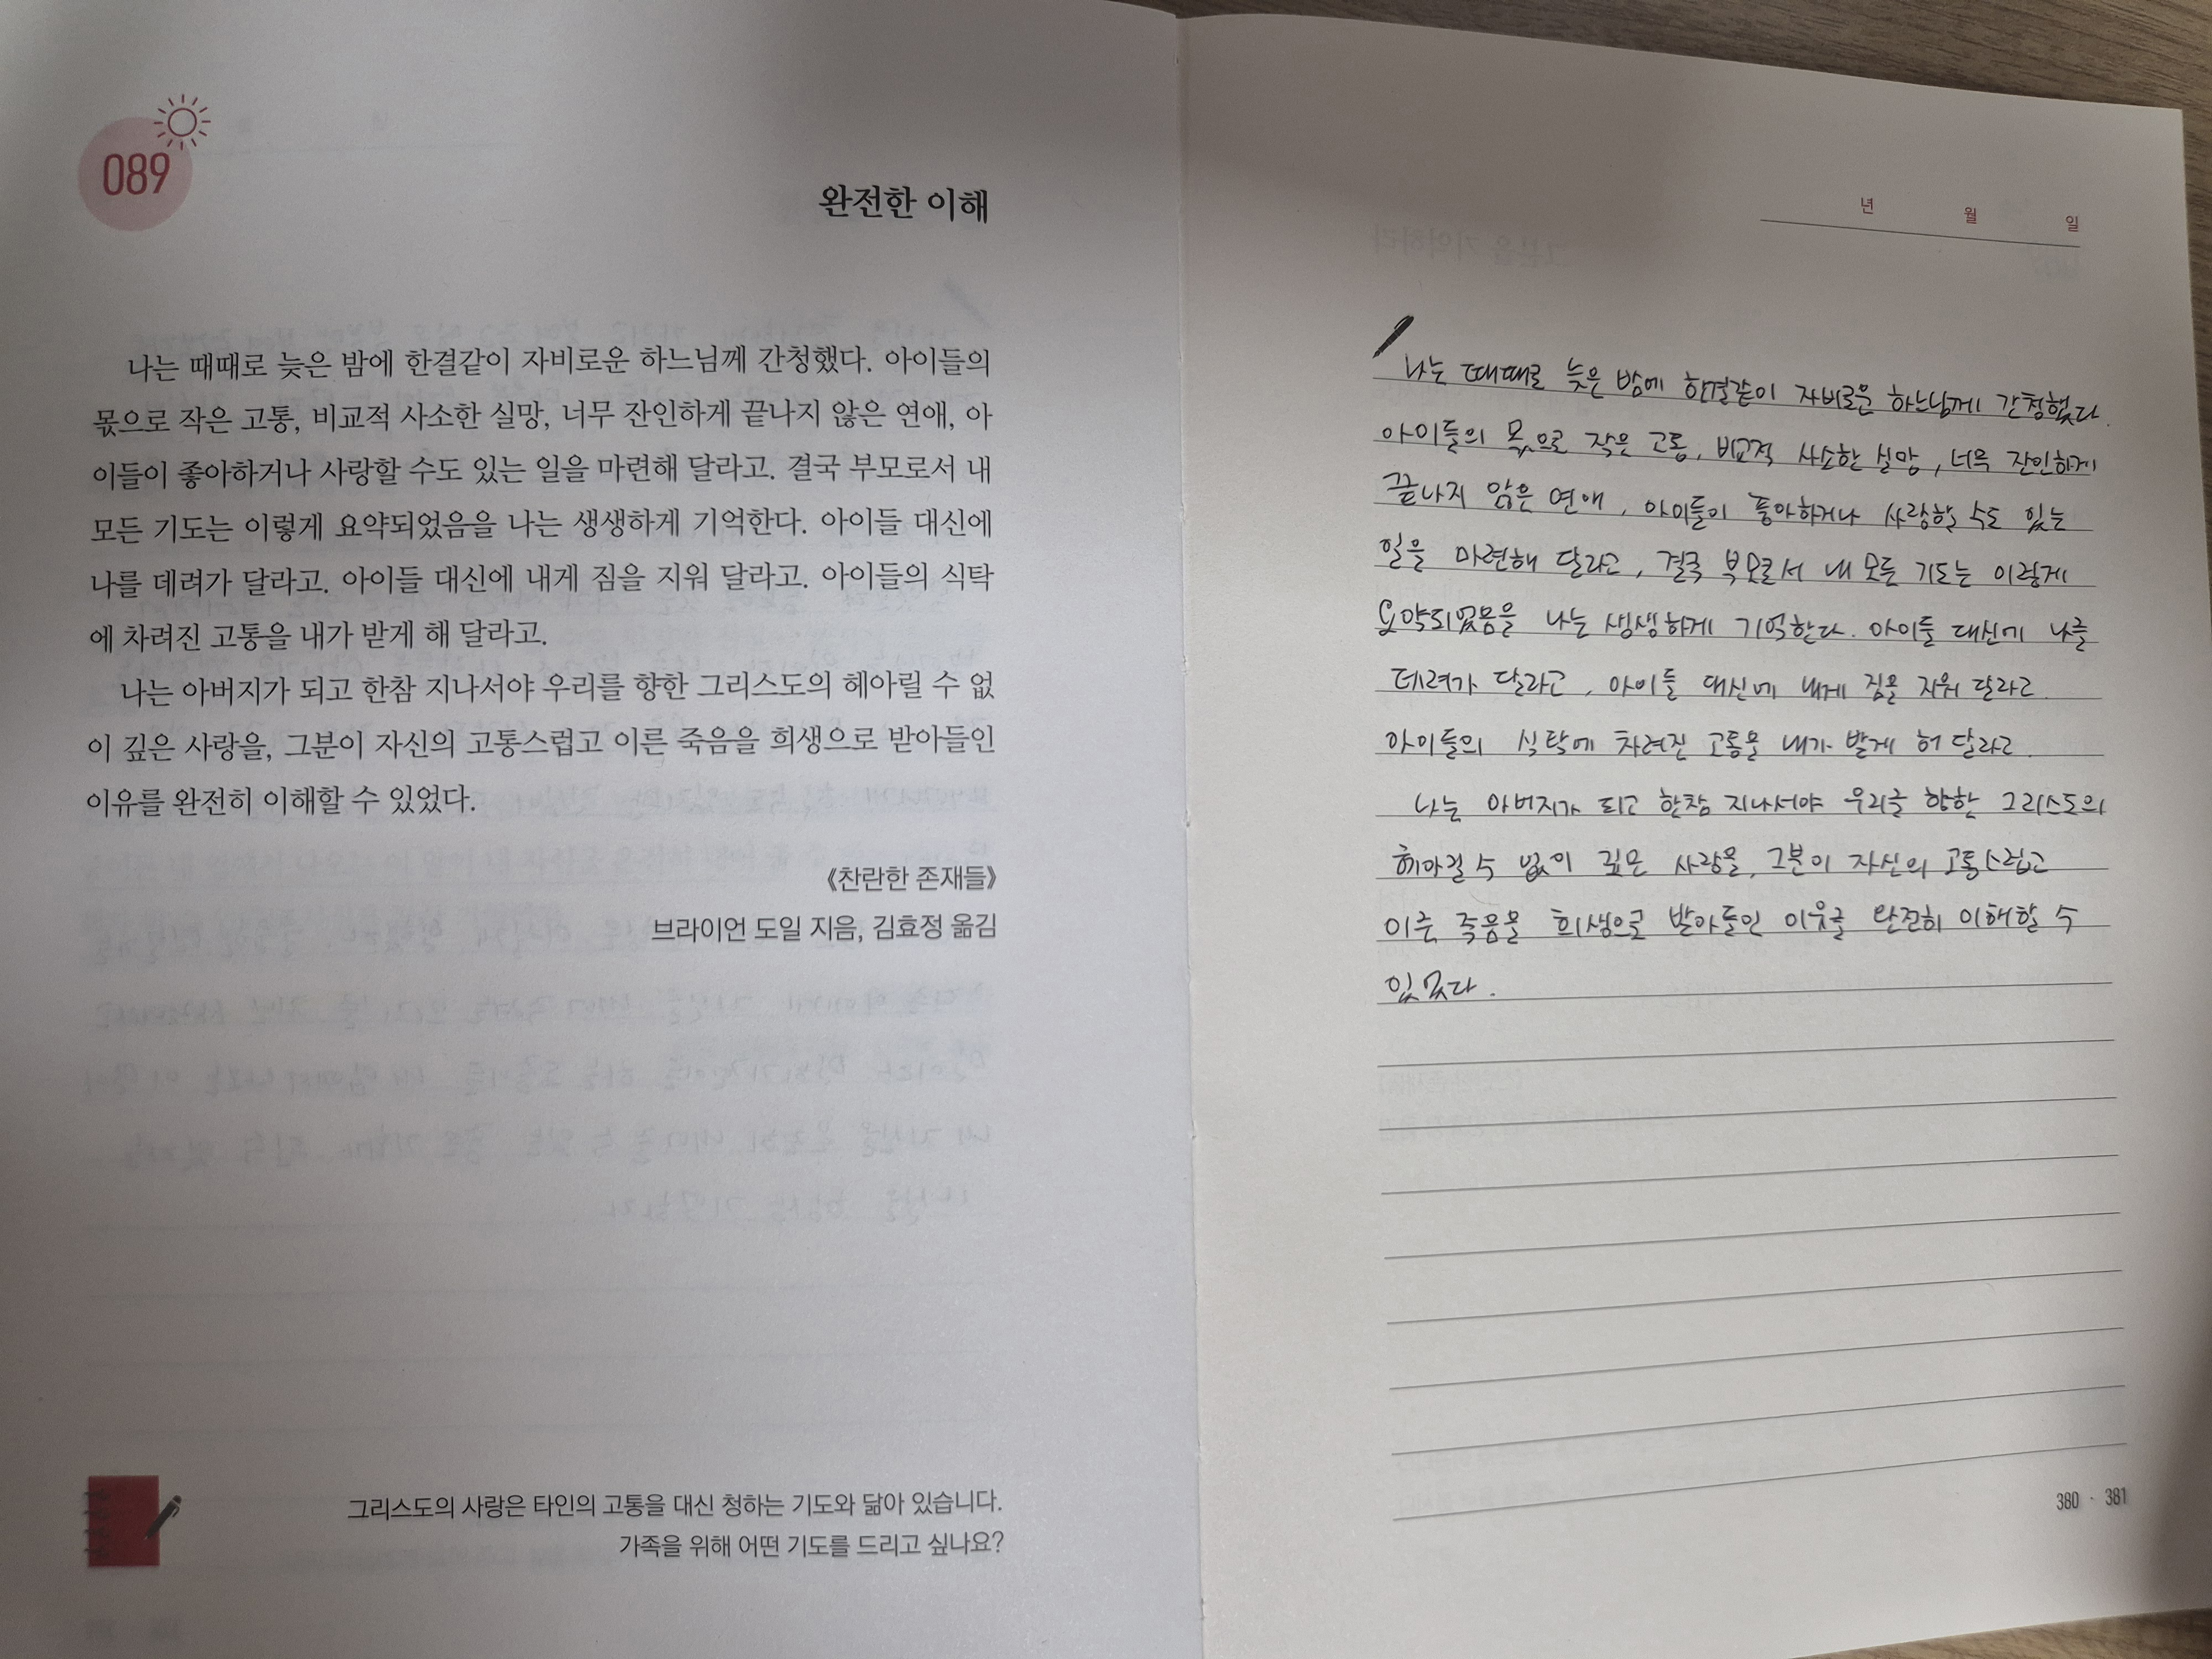 089
완전한 이해
나는 때때로 늦은 밤에 한결같이 자비로운 하느님께 간청했다. 아이들의
몫으로 작은 고통, 비교적 사소한 실망, 너무 잔인하게 끝나지 않은 연애, 아
이들이 좋아하거나 사랑할 수도 있는 일을 마련해 달라고. 결국 부모로서 내
모든 기도는 이렇게 요약되었음을 나는 생생하게 기억한다. 아이들 대신에
나를 데려가 달라고. 아이들 대신에 내게 짐을 지워 달라고. 아이들의 식탁
에 차려진 고통을 내가 받게 해 달라고.
나는 아버지가 되고 한참 지나서야 우리를 향한 그리스도의 헤아릴 수 없
이 깊은 사랑을, 그분이 자신의 고통스럽고 이른 죽음을 희생으로 받아들인
이유를 완전히 이해할 수 있었다.
《찬란한 존재들》
브라이언 도일 지음, 김효정 옮김
그리스도의 사랑은 타인의 고통을 대신 청하는 기도와 닮아 있습니다.
가족을 위해 어떤 기도를 드리고 싶나요?
년 월 일
나는 때때로 늦은 밤에 한결같이 자비로운 하느님께 간청했다.
아이들의 몫으로 작은 고통, 비교적 사소한 실망, 너무 잔인하게
끝나지 않은 연애, 아이들이 좋아하거나 사랑할 수도 있는
일을 마련해 달라고, 결국 부모로서 내 모든 기도는 이렇게
요약되었음을 나는 생생하게 기억한다. 아이들 대신에 나를
데려가 달라고, 아이들 대신에 내게 짐을 지워 달라고.
아이들의 식탁에 차려진 고통을 내가 받게 해 달라고.
나는 아버지가 되고 한참 지나서야 우리를 향한 그리스도의
헤아릴 수 없이 깊은 사랑을, 그분이 자신의 고통스럽고
이른 죽음을 희생으로 받아들인 이유를 완전히 이해할 수
있었다.
380 · 381